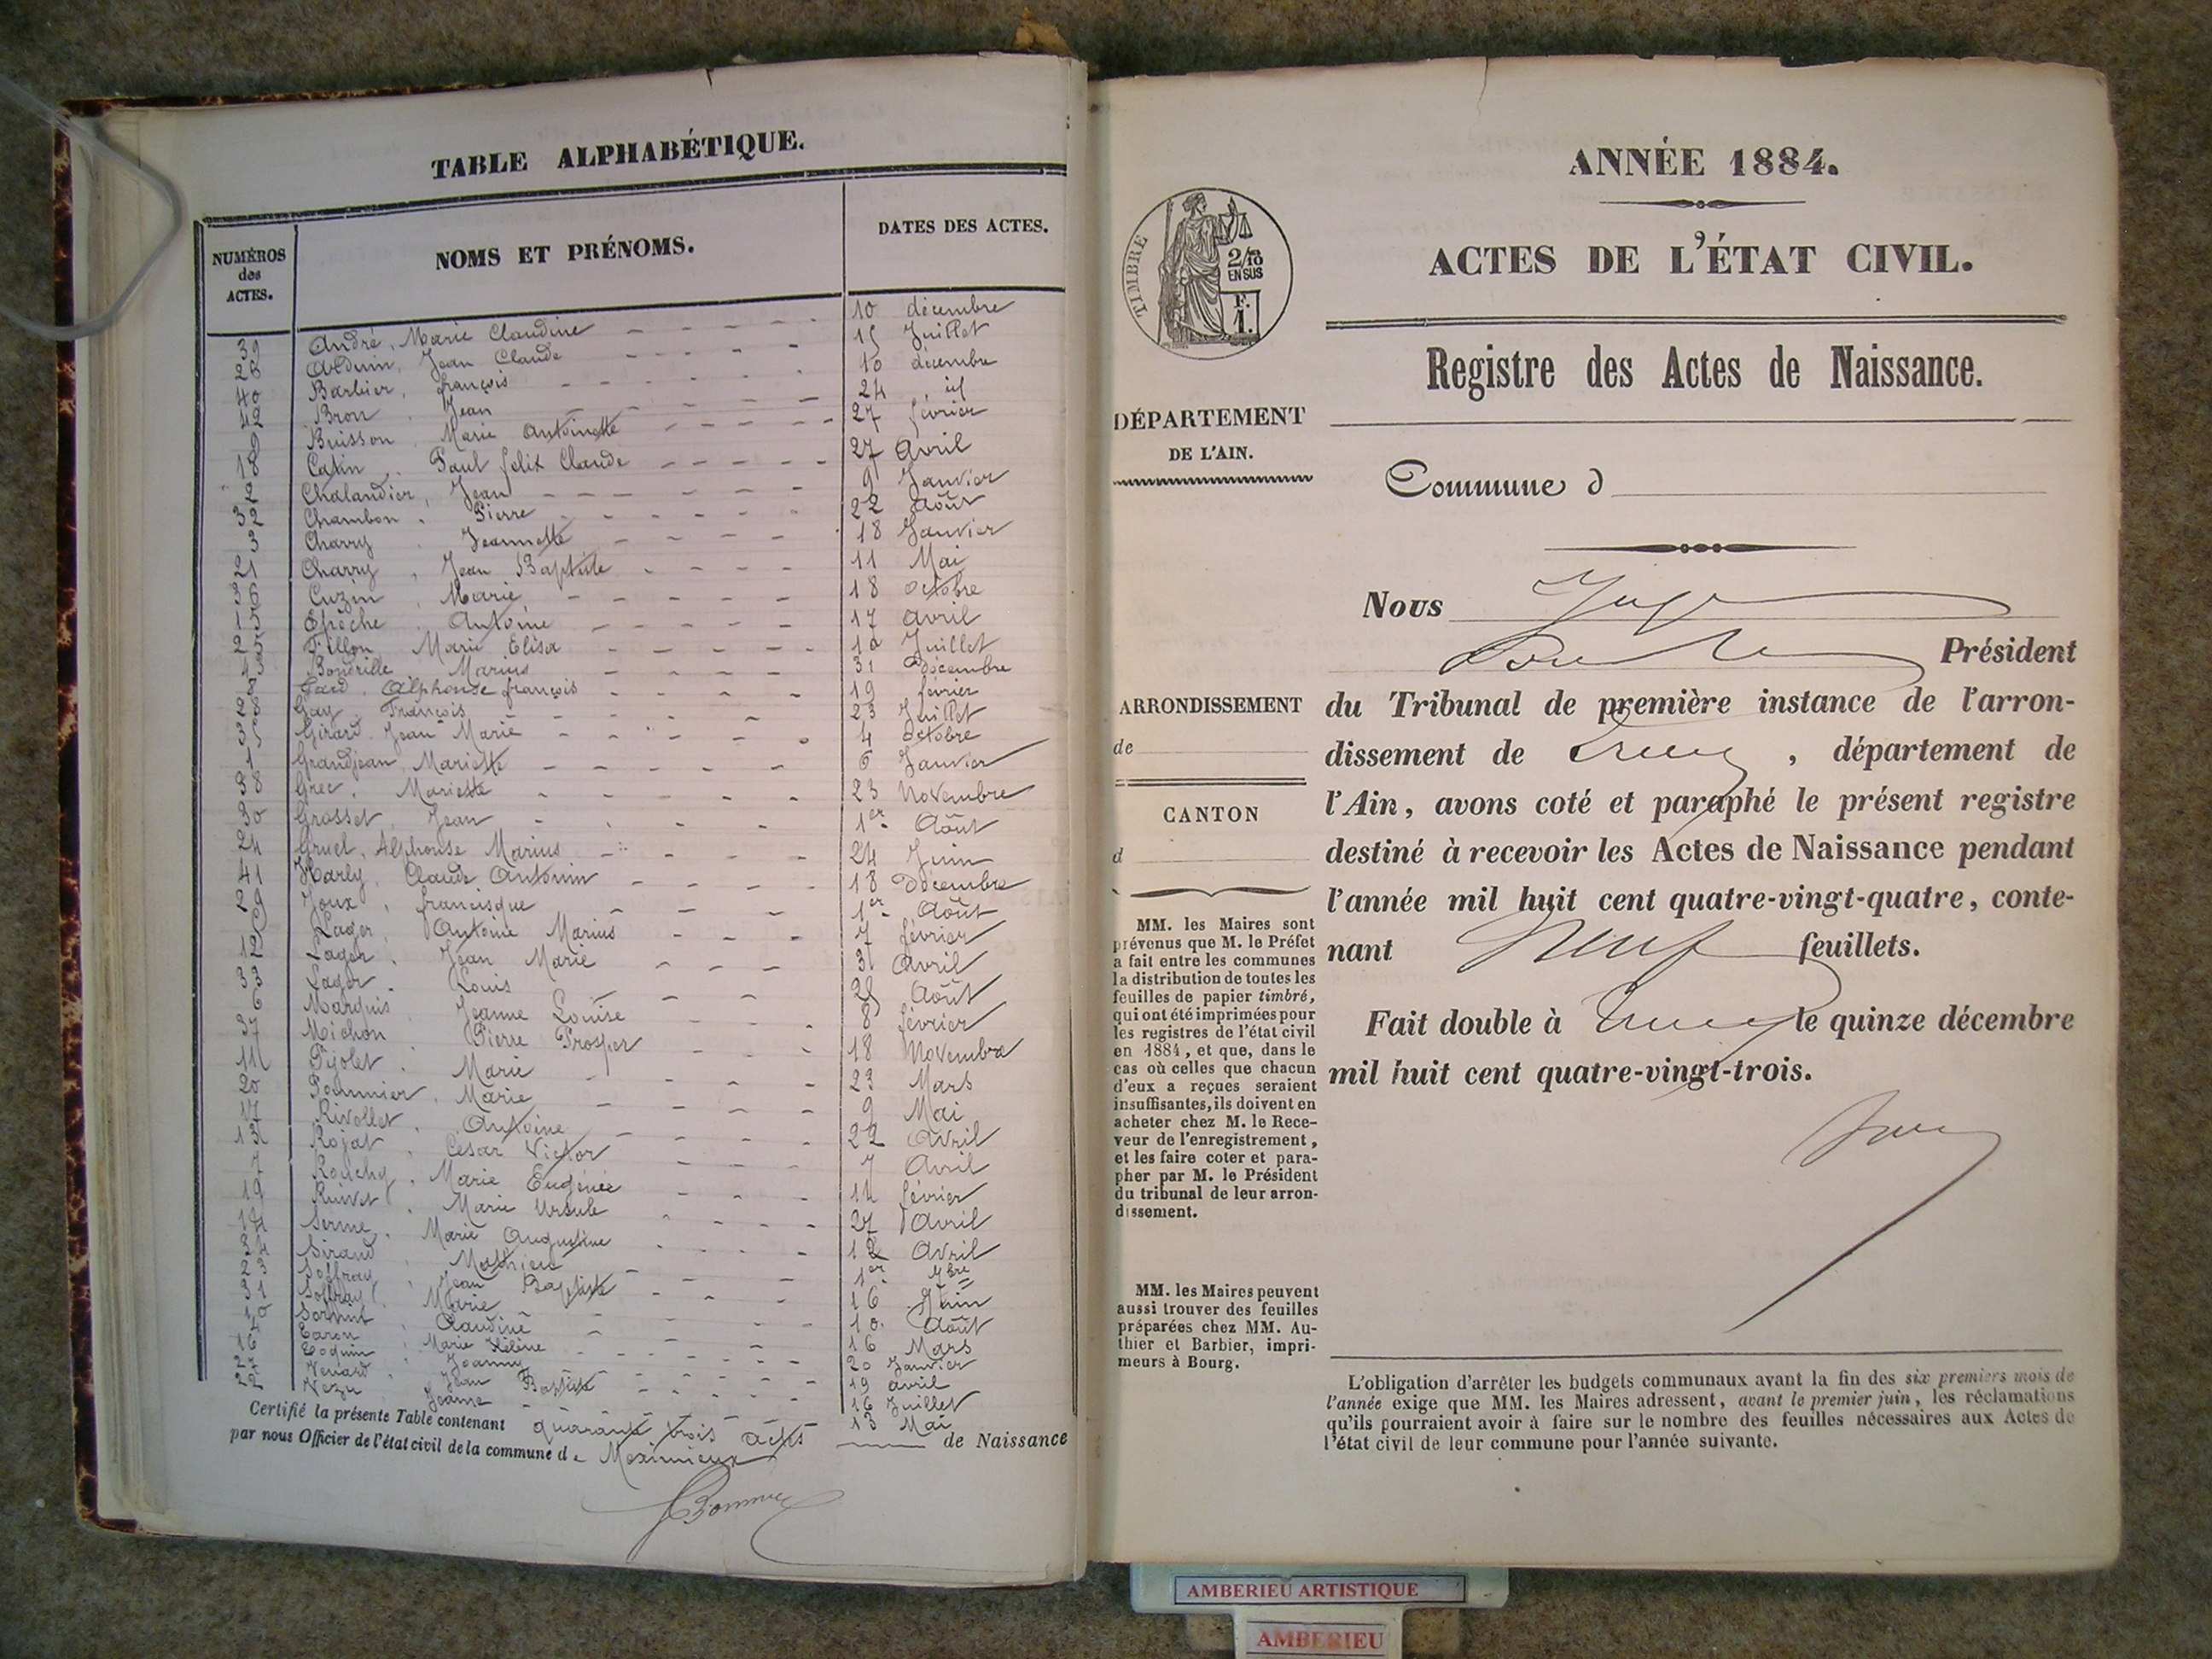 TABLE ALPHABÉTIQUE.
NUMÉROS
des
ACTES.
NOMS ET PRÉNOMS.
DATES DES ACTES.
39 André, Marie Claudine 10 décembre
Jean Claude 15 Juillet
40 Barbier, françois 10 décembre
42 Bron, Jean 24 id
9 Buisson, Marie Antoinette 27 février
18 Catin, Paul felix Claude 27 Avril
2 Chalandier, Jean 9 Janvier
32 Chambon, Pierre 22 Août
3 Charry, Jeannette 18 Janvier
21 Charry, Jean Baptiste 11 Mai
36 Cuzin, Marie 18 octobre
15 Epèche, Antoine 17 avril
25 Fillon, Marie Elisa 10 Juillet
43 Marius 31 Décembre
8 Alphonse françois 19 février
28 Gay, François 23 Juillet
35 Girard, Jean Marie 4 octobre
1 Grandjean, Mariette 6 Janvier
38 Grec, Mariette 23 Novembre
30 Grosset, Jean 1er Août
24 Gruel, Alphonse Marius 24 Juin
41 Harly, Claude Antonin 18 Décembre
29 Joux, francisque 1er Août
Lager, Antoine Marius 7 février
12 Lager, Jean Marie 31 Avril
33 Lager, Louis 25 Août
6 Marquis, Jeanne Louise 8 février
37 Michon, Pierre Prosper 18 Novembre
11 Pijolet, Marie 23 Mars
20 Pommier, Marie 9 Mai
17 Rivollet, Antoine 22 Avril
13 Rojat, César Victor 7 Avril
7 Rouchy, Marie Eugénie 14 février
19 Ruivet, Marie Ursule 27 Avril
14 Serme, Marie Augustine 12 Avril
34 Sirand, Mathieu 1er 7bre
23 Soffray, Jean Baptiste 16 Juin
31 Soffray, Marie 10 Août
10 Claudine 16 Mars
4 Marie Hélène 20 Janvier
16 Joanny 19 avril
27 Venard, Jean Baptiste 16 Juillet
22 Jeanne 13 Mai
Certifié la présente Table contenant quarante trois actes de Naissance
par nous Officier de l'état civil de la commune de Meximieux
ANNÉE 1884.
ACTES DE L'ÉTAT CIVIL.
TIMBRE
2/10
EN SUS
F.
1.
Registre des Actes de Naissance.
DÉPARTEMENT
DE L'AIN.
Commune d
Nous Juge
Président
ARRONDISSEMENT
de
CANTON
d
du Tribunal de première instance de l'arron-
dissement de , département de
l'Ain, avons coté et paraphé le présent registre
destiné à recevoir les Actes de Naissance pendant
l'année mil huit cent quatre-vingt-quatre, conte-
nant Neuf feuillets.
Fait double à le quinze décembre
mil huit cent quatre-vingt-trois.
MM. les Maires sont
prévenus que M. le Préfet
a fait entre les communes
la distribution de toutes les
feuilles de papier timbré,
qui ont été imprimées pour
les registres de l'état civil
en 1884, et que, dans le
cas où celles que chacun
d'eux a reçues seraient
insuffisantes, ils doivent en
acheter chez M. le Rece-
veur de l'enregistrement,
et les faire coter et para-
pher par M. le Président
du tribunal de leur arron-
dissement.
MM. les Maires peuvent
aussi trouver des feuilles
préparées chez MM. Au-
thier et Barbier, impri-
meurs à Bourg.
L'obligation d'arrêter les budgets communaux avant la fin des six premiers mois de
l'année exige que MM. les Maires adressent, avant le premier juin, les réclamations
qu'ils pourraient avoir à faire sur le nombre des feuilles nécessaires aux Actes de
l'état civil de leur commune pour l'année suivante.
AMBERIEU ARTISTIQUE
AMBERIEU